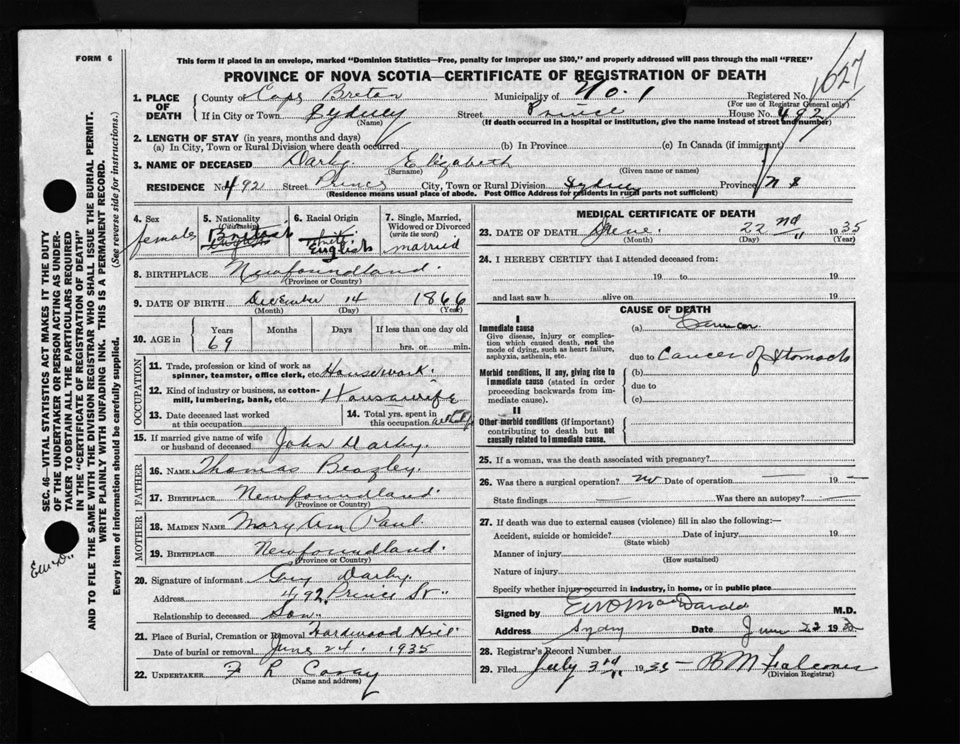 FORM 6
This form if placed in an envelope, marked "Dominion Statistics—Free, penalty for improper use $300," and properly addressed will pass through the mail "FREE"
PROVINCE OF NOVA SCOTIA—CERTIFICATE OF REGISTRATION OF DEATH
1627
1. PLACE OF DEATH
County of Cape Breton Municipality of No. 1 Registered No.
(For use of Registrar General only)
If in City or Town Sydney Street Prince House No. 492
(Name) (If death occurred in a hospital or institution, give the name instead of street and number)
2. LENGTH OF STAY (in years, months and days)
(a) In City, Town or Rural Division where death occurred (b) In Province (c) In Canada (if immigrant)
3. NAME OF DECEASED Darby. Elizabeth
(Surname) (Given name or names)
RESIDENCE No. 492 Street Prince City, Town or Rural Division Sydney Province N S
(Residence means usual place of abode. Post Office Address for residents in rural parts not sufficient)
4. Sex female
5. Nationality (Citizenship) English British
6. Racial Origin White English
7. Single, Married, Widowed or Divorced (write the word) married
8. BIRTHPLACE Newfoundland.
(Province or Country)
9. DATE OF BIRTH December 14 1866
(Month) (Day) (Year)
10. AGE in Years Months Days If less than one day old
69 hrs. or min.
OCCUPATION
11. Trade, profession or kind of work as spinner, teamster, office clerk, etc. Housework.
12. Kind of industry or business, as cotton-mill, lumbering, bank, etc. Housewife
13. Date deceased last worked at this occupation
14. Total yrs. spent in this occupation
15. If married give name of wife or husband of deceased John Darby.
FATHER
16. NAME Thomas Beazley.
17. BIRTHPLACE Newfoundland.
(Province or Country)
MOTHER
18. MAIDEN NAME Mary Ann Paul
19. BIRTHPLACE Newfoundland.
(Province or Country)
20. Signature of informant Guy Darby.
Address 492 Prince St.
Relationship to deceased Son.
21. Place of Burial, Cremation or Removal Hardwood Hill
Date of burial or removal June 24. 1935
22. UNDERTAKER F R
(Name and address)
MEDICAL CERTIFICATE OF DEATH
23. DATE OF DEATH June 22nd 1935
(Month) (Day) (Year)
24. I HEREBY CERTIFY that I attended deceased from:
19 to 19
and last saw h alive on 19
CAUSE OF DEATH
I
Immediate cause (a)
Give disease, injury or complication which caused death, not the mode of dying, such as heart failure, asphyxia, asthenia, etc.
due to Cancer of Stomach
Morbid conditions, if any, giving rise to immediate cause (stated in order proceeding backwards from immediate cause).
(b)
due to
(c)
II
Other morbid conditions (if important) contributing to death but not causally related to immediate cause.
25. If a woman, was the death associated with pregnancy?
26. Was there a surgical operation? no Date of operation 19 —
State findings — Was there an autopsy? —
27. If death was due to external causes (violence) fill in also the following:—
Accident, suicide or homicide? Date of injury 19
(State which)
Manner of injury
(How sustained)
Nature of injury
Specify whether injury occurred in industry, in home, or in public place
Signed by M.D.
Address Sydney Date June 22 1935
28. Registrar's Record Number
29. Filed July 3rd 1935 B M Falconer
(Division Registrar)
SEC. 46—VITAL STATISTICS ACT MAKES IT THE DUTY
OF THE UNDERTAKER OR PERSON ACTING AS UNDER-
TAKER TO OBTAIN ALL THE PARTICULARS REQUIRED
IN THE "CERTIFICATE OF REGISTRATION OF DEATH"
AND TO FILE THE SAME WITH THE DIVISION REGISTRAR WHO SHALL ISSUE THE BURIAL PERMIT.
WRITE PLAINLY WITH UNFADING INK. THIS IS A PERMANENT RECORD.
Every item of information should be carefully supplied. (See reverse side for instructions.)